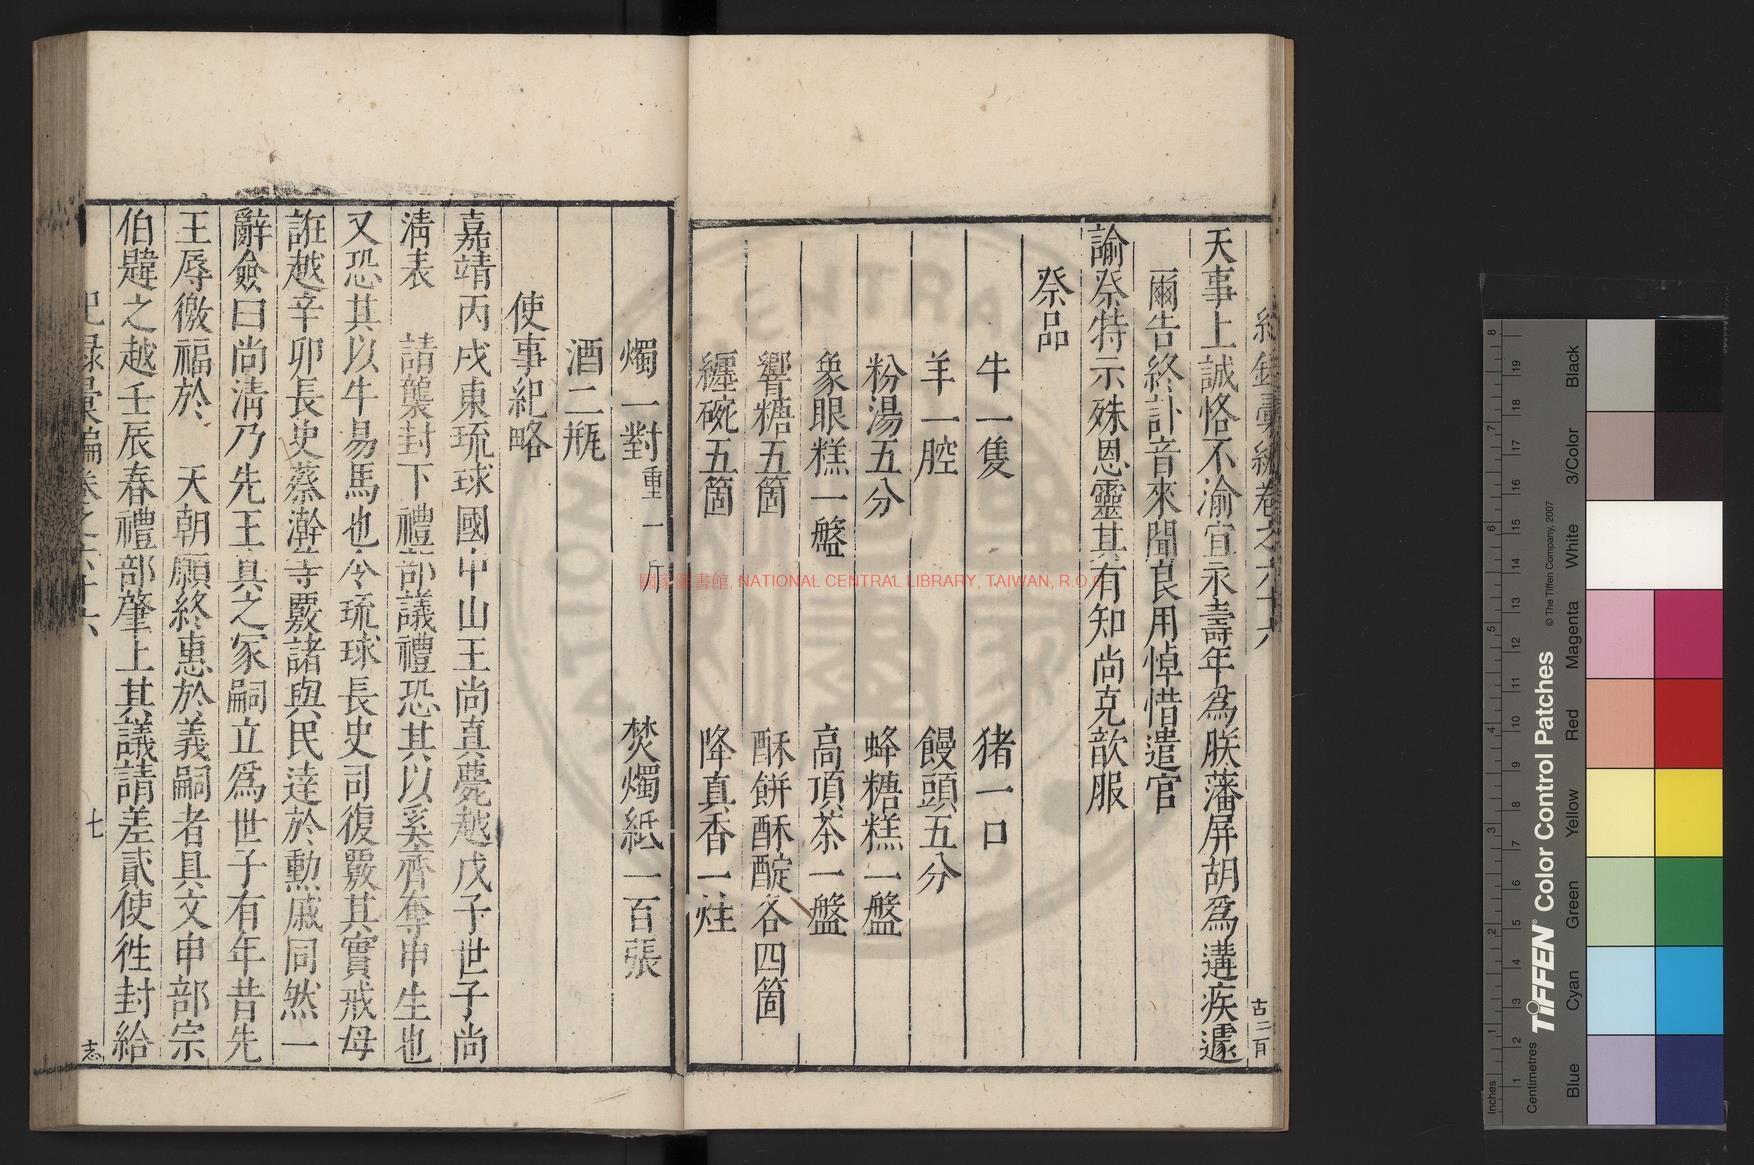 天事上誠恪不渝宜永壽年爲朕藩屏胡爲遘疾遽
爾告終訃音來聞良用悼惜遣官
諭祭特示殊恩靈其有知尚克歆服
祭品
牛一隻 猪一口
羊一腔 饅頭五分
粉湯五分 蜂糖糕一盤
象眼糕一盤 高頂茶一盤
響糖五箇 酥餅酥酲各四箇
纏碗五箇 降真香一炷
燭一對重一斤 焚燭紙一百張
酒二瓶
使事紀略
嘉靖丙戌東琉球國中山王尚真薨越戊子世子尚
淸表 請襲封下禮部議禮恐其以奚齊奪申生也
又恐其以牛易馬也令琉球長史司復覈其實戒毋
誑越辛卯長史蔡瀚等覈諸與民逹於勳戚同然一
辭僉曰尚淸乃先王真之冢嗣立爲世子有年昔先
王辱徼福於 天朝願終惠於義嗣者具文申部宗
伯韙之越壬辰春禮部肇上其議請差貳使徃封給
紀録彙編卷之六十六
七
志
國家圖書館, NATIONAL CENTRAL LIBRARY, TAIWAN, R.O.C.
Inches
Centimetres
TIFFEN® Color Control Patches
© The Tiffen Company, 2007
Blue
Cyan
Green
Yellow
Red
Magenta
White
3/Color
Black